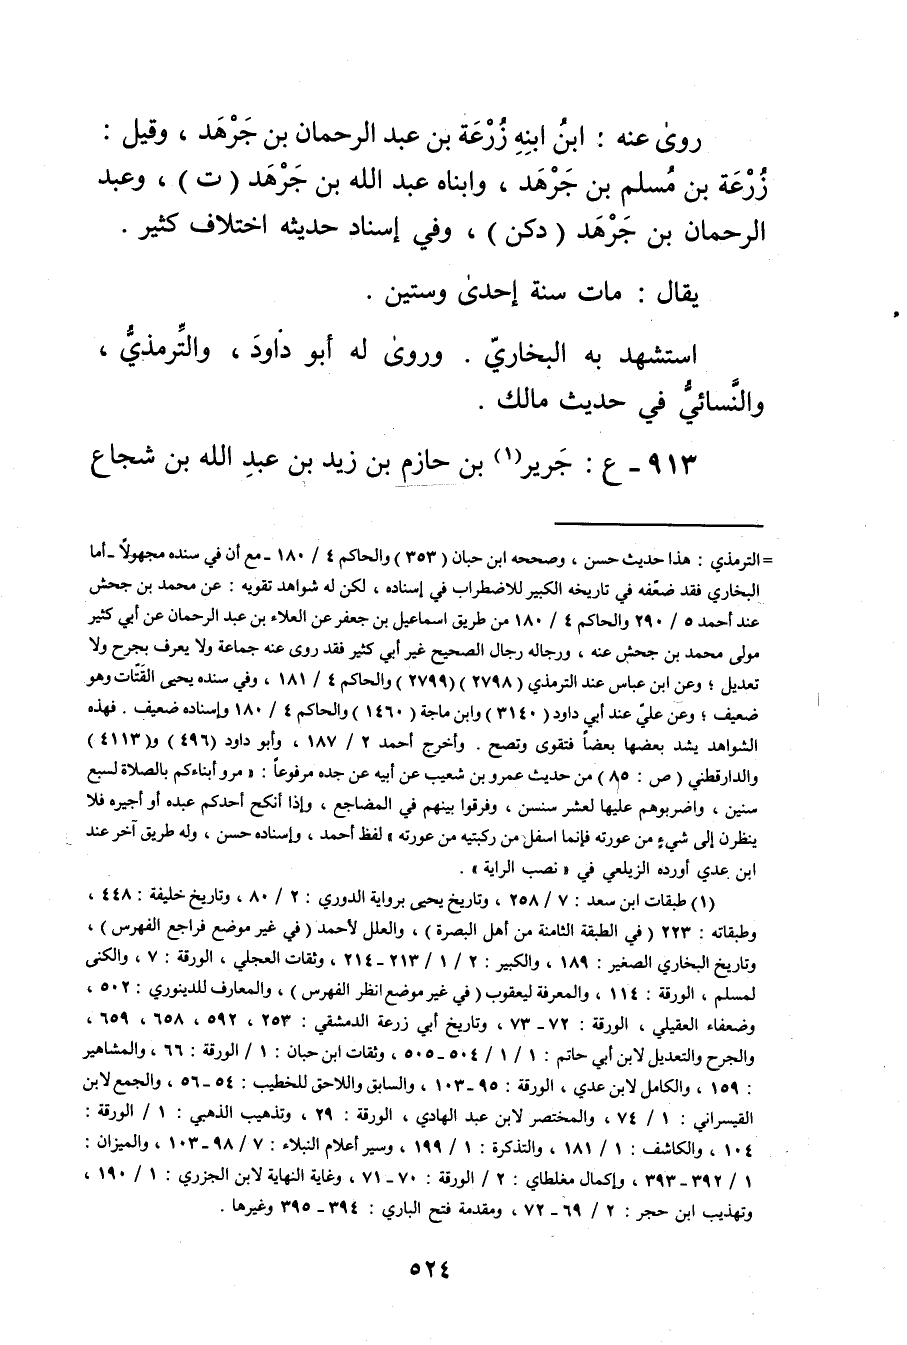 روىٰ عنه : ابنُ ابنِهِ زُرْعَة بن عبد الرحمان بن جَرْهَد ، وقيل :
زُرْعَة بن مُسلم بن جَرْهَد ، وابناه عبد الله بن جَرْهَد ( ت ) ، وعبد
الرحمان بن جَرْهَد ( دكن ) ، وفي إسناد حديثه اختلاف كثير .
يقال : مات سنة إحدىٰ وستين .
استشهد به البخاريّ . وروىٰ له أبو داودَ ، والتِّرمذيُّ ،
والنَّسائيُّ في حديث مالك .
٩١٣ - ع : جَرير(١) بن حازم بن زيد بن عبدِ الله بن شجاع
= الترمذي : هذا حديث حسن ، وصححه ابن حبان ( ٣٥٣ ) والحاكم ٤ / ١٨٠ - مع أن في سنده مجهولاً - أما
البخاري فقد ضعّفه في تاريخه الكبير للاضطراب في إسناده ، لكن له شواهد تقويه : عن محمد بن جحش
عند أحمد ٥ / ٢٩٠ والحاكم ٤ / ١٨٠ من طريق اسماعيل بن جعفر عن العلاء بن عبد الرحمان عن أبي كثير
مولى محمد بن جحش عنه ، ورجاله رجال الصحيح غير أبي كثير فقد روى عنه جماعة ولا يعرف بجرح ولا
تعديل ؛ وعن ابن عباس عند الترمذي ( ٢٧٩٨ ) (٢٧٩٩ ) والحاكم ٤ / ١٨١ ، وفي سنده يحيى القَتّات وهو
ضعيف ؛ وعن عليّ عند أبي داود ( ٣١٤٠ ) وابن ماجة ( ١٤٦٠ ) والحاكم ٤ / ١٨٠ وإسناده ضعيف . فهذه
الشواهد يشد بعضها بعضاً فتقوى وتصح . وأخرج أحمد ٢ / ١٨٧ ، وأبو داود (٤٩٦ ) و( ٤١١٣ )
والدارقطني ( ص : ٨٥ ) من حديث عمرو بن شعيب عن أبيه عن جده مرفوعاً : « مرو أبناءكم بالصلاة لسبع
سنين ، واضربوهم عليها لعشر سنسن ، وفرقوا بينهم في المضاجع ، وإذا أنكح أحدكم عبده أو أجيره فلا
ينظرن إلى شيءٍ من عورته فإنما اسفل من ركبتيه من عورته » لفظ أحمد ، وإسناده حسن ، وله طريق آخر عند
ابن عدي أورده الزيلعي في « نصب الراية » .
(١) طبقات ابن سعد : ٧ / ٢٥٨ ، وتاريخ يحيى برواية الدوري : ٢ / ٨٠ ، وتاريخ خليفة : ٤٤٨ ،
وطبقاته : ٢٢٣ ( في الطبقة الثامنة من أهل البصرة ) ، والعلل لأحمد ( في غير موضع فراجع الفهرس ) ،
وتاريخ البخاري الصغير : ١٨٩ ، والكبير : ٢ / ١ / ٢١٣ - ٢١٤ ، وثقات العجلي ، الورقة : ٧ ، والكنى
لمسلم ، الورقة : ١١٤ ، والمعرفة ليعقوب ( في غير موضع انظر الفهرس ) ، والمعارف للدينوري : ٥٠٢ ،
وضعفاء العقيلي ، الورقة : ٧٢ - ٧٣ ، وتاريخ أبي زرعة الدمشقي : ٢٥٣ ، ٥٩٢ ، ٦٥٨ ، ٦٥٩ ،
والجرح والتعديل لابن أبي حاتم : ١ / ١ / ٥٠٤ - ٥٠٥ ، وثقات ابن حبان : ١ / الورقة : ٦٦ ، والمشاهير
: ١٥٩ ، والكامل لابن عدي ، الورقة : ٩٥ - ١٠٣ ، والسابق واللاحق للخطيب : ٥٤ - ٥٦ ، والجمع لابن
القيسراني : ١ / ٧٤ ، والمختصر لابن عبد الهادي ، الورقة : ٢٩ ، وتذهيب الذهبي : ١ / الورقة :
١٠٤ ، والكاشف : ١ / ١٨١ ، والتذكرة : ١ / ١٩٩ ، وسير أعلام النبلاء : ٧ / ٩٨ - ١٠٣ ، والميزان :
١ / ٣٩٢ - ٣٩٣ ، وإكمال مغلطاي : ٢ / الورقة : ٧٠ - ٧١ ، وغاية النهاية لابن الجزري : ١ / ١٩٠ ،
وتهذيب ابن حجر : ٢ / ٦٩ - ٧٢ ، ومقدمة فتح الباري : ٣٩٤ - ٣٩٥ وغيرها .
٥٢٤